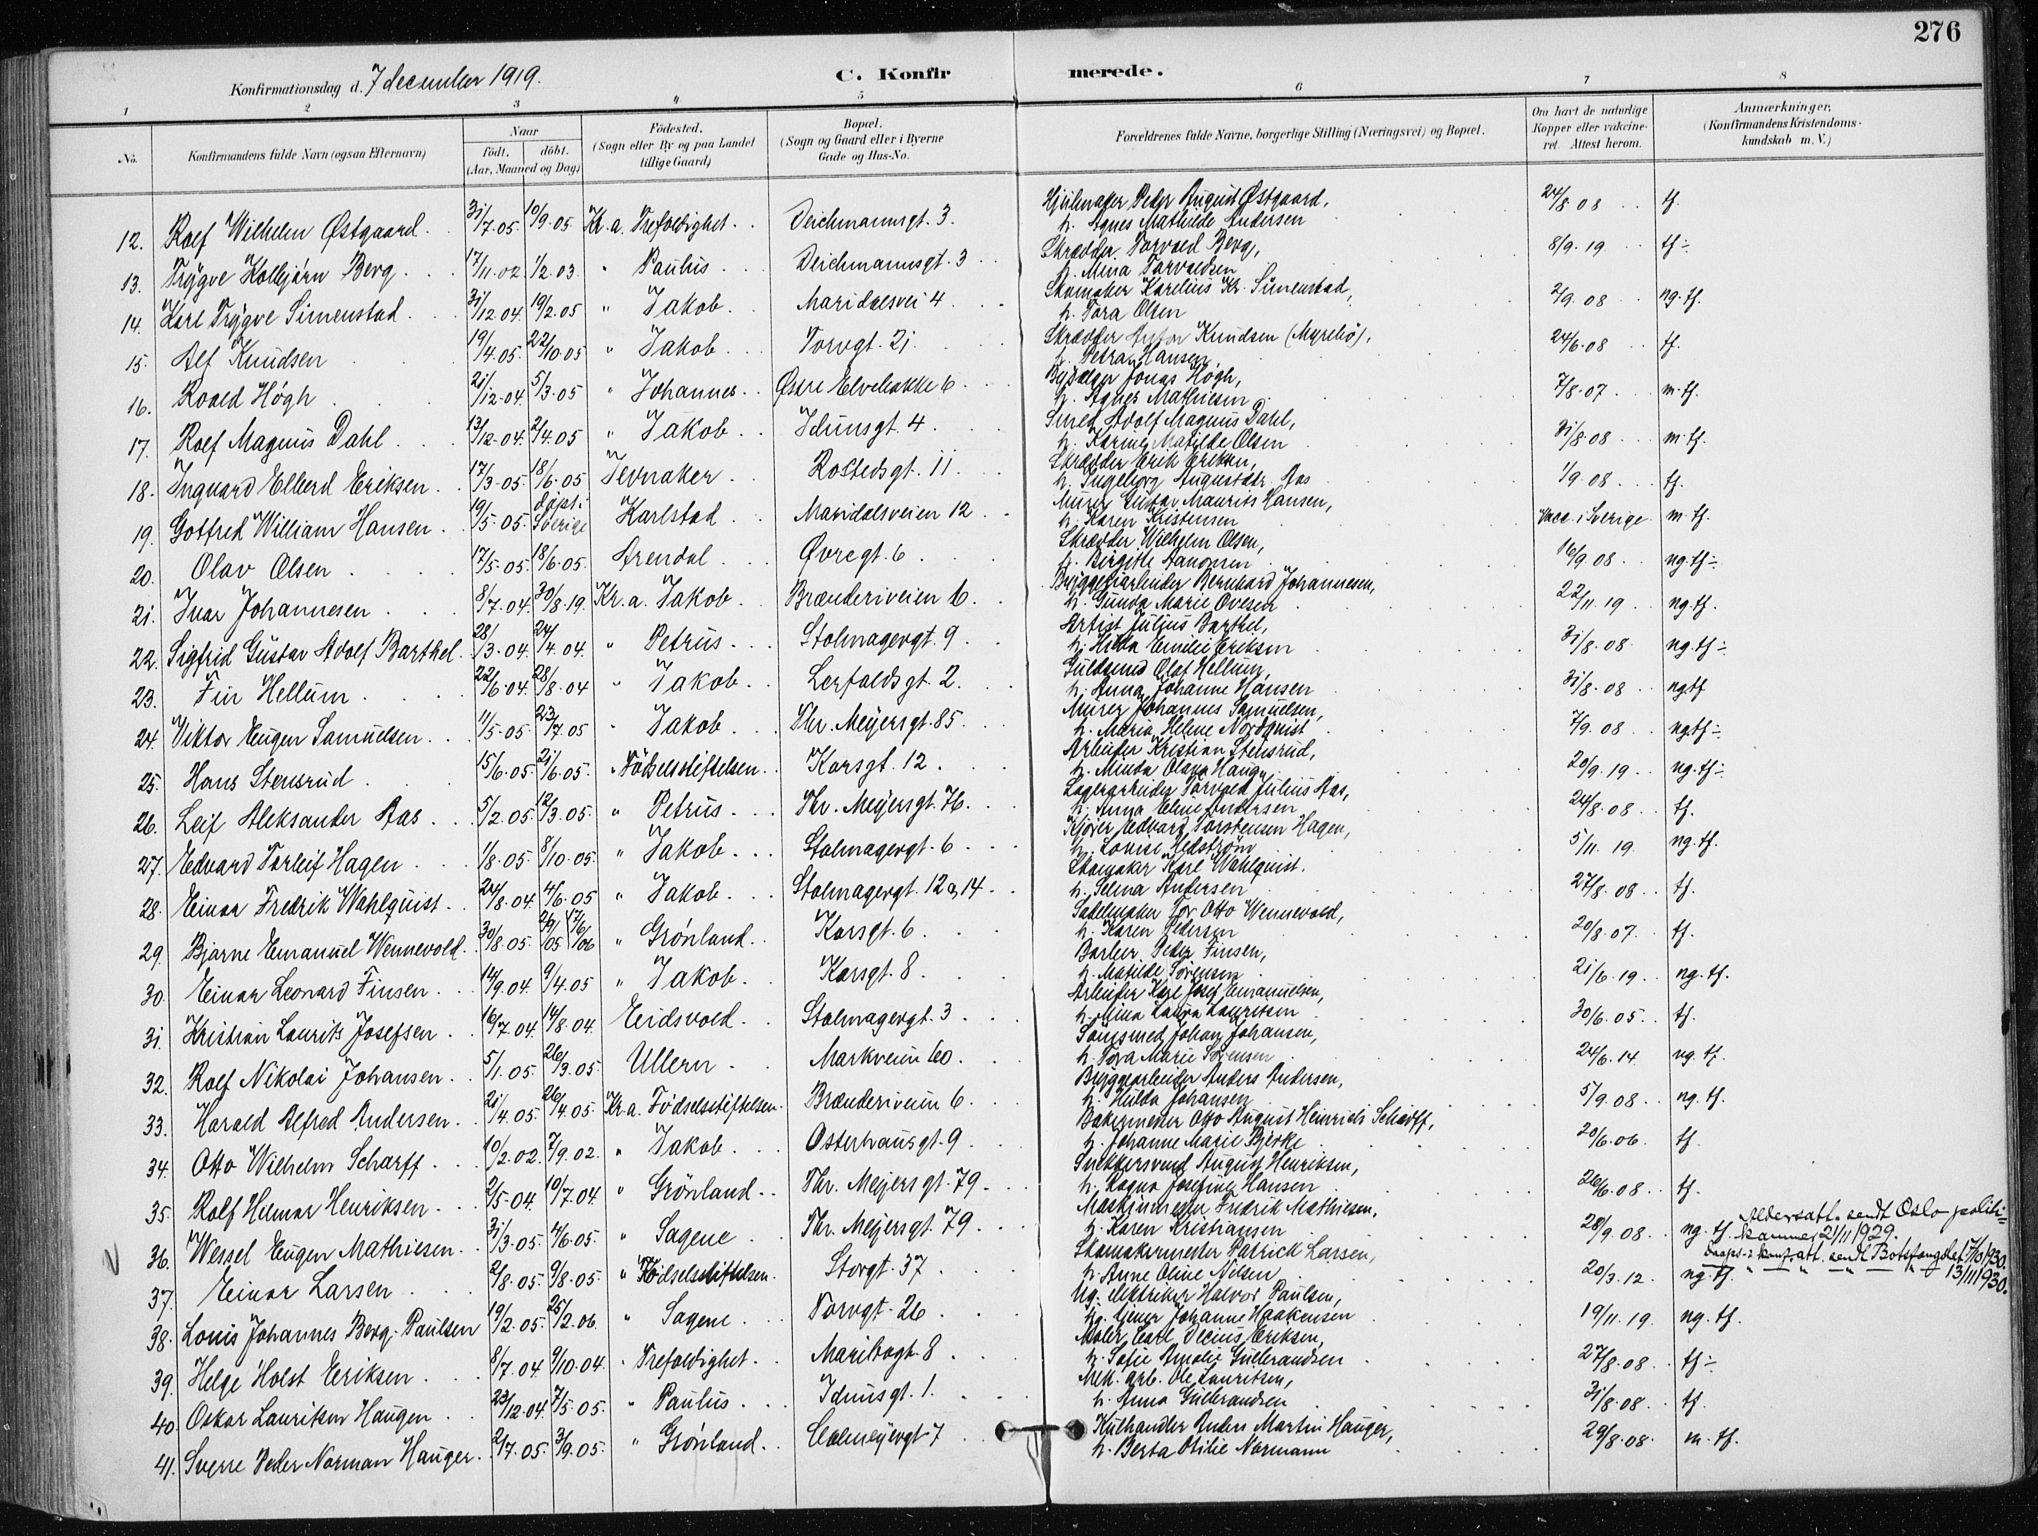 276
Konfirmationsdag d. 7 december 1919.
C. Konfirmerede.
1 2 3 4 5 6 7 8
No. Konfirmandens fulde Navn (ogsaa Efternavn) Naar födt. döbt. (Aar, Maaned og Dag) Födested. (Sogn eller By og paa Landet tillige Gaard) Bopæl. (Sogn og Gaard eller i Byerne Gade og Hus-No. Forældrenes fulde Navne, borgerlige Stilling (Næringsvei) og Bopæl. Om havt de naturlige Kopper eller vakcineret. Attest herom. Anmærkninger. (Konfirmandens Kristendomskundskab m. V.)
12. Rolf Wilhelm Østgaard 31/7.05 10/9.05 Kr.a. Trefoldighet Deichmannsgt. 3. Hjulmaker Peder August Østgaard, h. Agnes Mathilde Andersen 24/8.08 tf.
13. Trygve Kolbjørn Berg 17/11.02 1/2.03 " Paulus Deichmannsgt. 3 Skrædder Torvald Berg, h. Mina Torvaldsen 8/9.19 tf÷
14. Karl Trygve Simenstad 31/12.04 19/2.05 " Jakob Maridalsvei 4 Skomaker Karelius Kr. Simenstad, h. Tora Olsen 2/9.08 ng. tf.
15. Alf Knudsen 19/4.05 22/10.05 " Jakob Torvgt. 21 Skrædder Anton Knudsen (Myrebø), h. Petra Hansen 24/6.08 tf.
16. Roald Høgh 21/12.04 5/3.05 " Johannes Østre Elvebakke 6 Jonas Høgh, h. Agnes Mathiesen 7/8.07 m. tf.
17. Rolf Magnus Dahl 13/12.04 2/4.05 " Jakob Idunsgt. 4 Smed Adolf Magnus Dahl, h. Karine Matilde Olsen 31/8.08 m. tf.
18. Ingvard Elberd Eriksen 17/3.05 18/6.05 Jevnaker Rostedsgt. 11 Skrædder Erik Eriksen, h. Ingeborg Augustdtr. Aas 1/9.08 tf.
19. Gotfred William Hansen 19/5.05 døpt i Sverige Karlstad Maridalsveien 12 Murer Gustav Maurits Hansen, h. Karen Kristensen Vacc. i Sverige m. tf.
20. Olav Olsen 17/5.05 18/6.05 Arendal Øvregt. 6 Skrædder Wilhelm Olsen, h. Birgitte Aanonsen 16/9.08 ng. tf÷
21. Ivar Johannesen 8/7.04 30/8.19 Kr.a. Jakob Brænderiveien 6 Bryggeriarbeider Bernhard Johannesen, h. Gunda Marie Ovesen 22/11.19 ng. tf.
22. Sigfrid Gustav Adolf Barthel 28/3.04 24/4.04 " Petrus Stolmagergt. 9 Artist Julius Barthel, h. Hilda Emilie Eriksen 31/8.08 ng. tf÷
23. Fin Hellum 22/6.04 28/8.04 " Jakob Lerfaldsgt. 2. Guldsmed Olaf Hellum, h. Anna Johanne Hansen 31/8.08 ng tf
24. Viktor Eugen Samuelsen 11/5.05 23/7.05 " Jakob Thv. Meyersgt. 85 Murer Johannes Samuelsen, h. Maria Helene Nordquist 7/9.08 ng. tf÷
25. Hans Stensrud 15/6.05 21/6.05 " Fødselsstiftelsen Korsgt. 12 Arbeider Kristian Stensrud, h. Minda Olava Haug 20/9.19 ng. tf÷
26. Leif Aleksander Aas 5/2.05 12/3.05 " Petrus Thv. Meyersgt. 76 Lagerarbeider Torvald Julius Aas, h. Anna Eline Andersen 24/8.08 tf.
27. Edvard Torleif Hagen 1/8.05 8/10.05 " Jakob Stolmagergt. 6 Kjører Edvard Torstensen Hagen, h. Lovise Hedstrøm 5/11.19 ng. tf.
28. Einar Fredrik Wahlquist 24/8.04 4/6.05 " Jakob Stolmagergt. 12a, 14 Skomaker Karl Wahlquist. h. Selma Andersen 27/8.08 tf.
29. Bjarne Emanuel Wennevold 30/8.05 24/9/05 17/6/06 " Grønland Korsgt. 6 Sadelmaker Tor Otto Wennevold, h. Karen Pedersen 20/8.07 tf.
30. Einar Leonard Finsen 14/9.04 9/4.05 " Jakob Korsgt. 8 Barber Peder Finsen, h. Matilde Sørensen 21/6.19 ng. tf.
31. Kristian Laurits Josefsen 16/7.04 14/8.04 Eidsvold Stolmagergt. 3 Arbeider Karl Josef Emanuelsen, h. Mina Laura Lauritsen 30/6.05 tf.
32. Rolf Nikolai Johansen 5/1.05 26/3.05 Ullern Markveien 60 Johan Johansen, h. Tora Marie Sørensen 24/6.14 ng. tf.
33. Harald Alfred Andersen 21/4.05 26/4.05 Kr.a. Fødselsstiftelsen Brænderiveien 6 Bryggearbeider Anders Andersen, h. Hilda Johansen 5/9.08 ng. tf.
34. Otto Wilhelm Scharff 10/2.02 7/9.02 " Jakob Osterhausgt. 9 Bakermester Otto August Heinrich Scharff, h. Johanne Marie Bjerke 20/6.06 tf.
35. Rolf Hilmar Henriksen 2/5.04 10/7.04 " Grønland Thv. Meyersgt. 79 Snekkersvend August Henriksen, h. Ragna Josefine Hansen 26/6.08 tf.
36. Wessel Eugen Mathiesen 31/3.05 4/6.05 " Sagene Thv. Meyersgt. 79 Maskinmester Fridrik Mathiesen, h. Karen Kristiansen 28/9.08 ng. tf. Aldersatt. sendt Oslo politikammer 21/11 1929.
37. Einar Larsen 2/8.05 9/8.05 " Fødselsstiftelsen Storgt. 37 Skomakermester Patrick Larsen, h. Anne Oline Nilsen 20/3.12 ng. tf. Daaps- & konf. att. sendt Botsfængslet 17/10 1930. " " " " " 13/11 1930.
38. Louis Johannes Berg-Paulsen 19/2.05 25/2.06 " Sagene Torvgt. 26 Ug. elektriker Halvor Paulsen, Johanne Haakensen 19/11.19 ng. tf.
39. Helge Holst Eriksen 8/7.04 9/10.04 " Trefoldighet Maribogt. 8 Maler Carl Decius Eriksen, h. Sofie Amalie Gulbrandsen 27/8.08 tf÷
40. Oskar Lauritsen Haugen 23/12.04 7/5.05 " Paulus Idunsgt. 1. Mek. arb. Ole Lauritsen, h. Anna Gulbrandsen 31/8.08 tf.
41. Sverre Peder Norman Hauger 2/7.05 3/9.05 " Grønland Calmeyergt 7 Kulhandler Anders Martin Hauger, h. Berta Otilie Normann 29/8.08 m. tf.